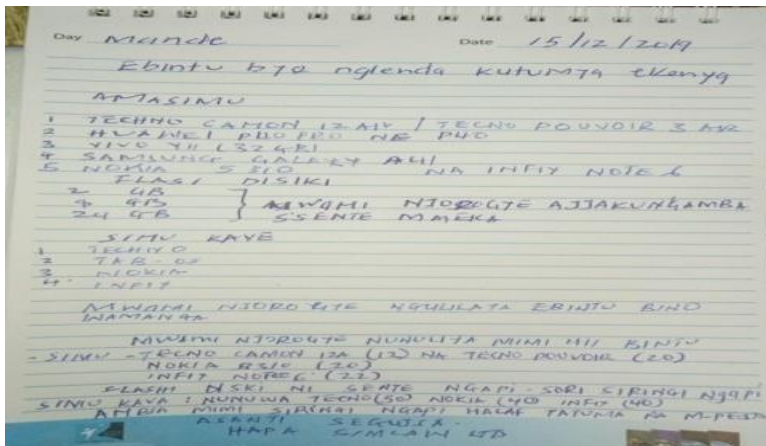 Day Mande Date 15/12/2019
Ebintu bya nglenda kutumya ekenya
AMASIMU
1 TECHNO CAMON 12 AIR / TECNO POUVOIR 3 AIR
2 HUAWEI P40 PRO NE P40
3 VIVO Y11 (32GR)
4 SAMSUNG GALAXY A41
5 NOKIA 5310 NA INFIX NOTE 6
FLASI DISIKI
2 GB
4 GB } MWAMI NJOROGYE AJJAKUNGAMBA
24 GB SSENTE MMEKA
SIMU KAVE
1 TECHNO
2 TAB-
3 NOKIA
4 INFIX
MWAMI NJOROGYE NGULILAYA EBINTU BINO
WAMANGA
MWAMI NJOROGYE NUNULIYA MIMI HII BINTU
- SIMU - TECNO CAMON 12A (12) NA TECNO POUVOIR (20)
NOKIA 5310 (20)
INFIX NOTE 6 (22)
FLASHI DISKI NI SENTE NGAPI - SORI SIRINGI NGAPI
SIMU KAVA : NUNUWA TECNO (50) NOKIA (40) INFIX (40)
AMBIA MIMI SIRINGI NGAPI HALAF TATUMA NA M-PESA
ASANTI SEGUJJA.
HAPA SIMLAW LTD